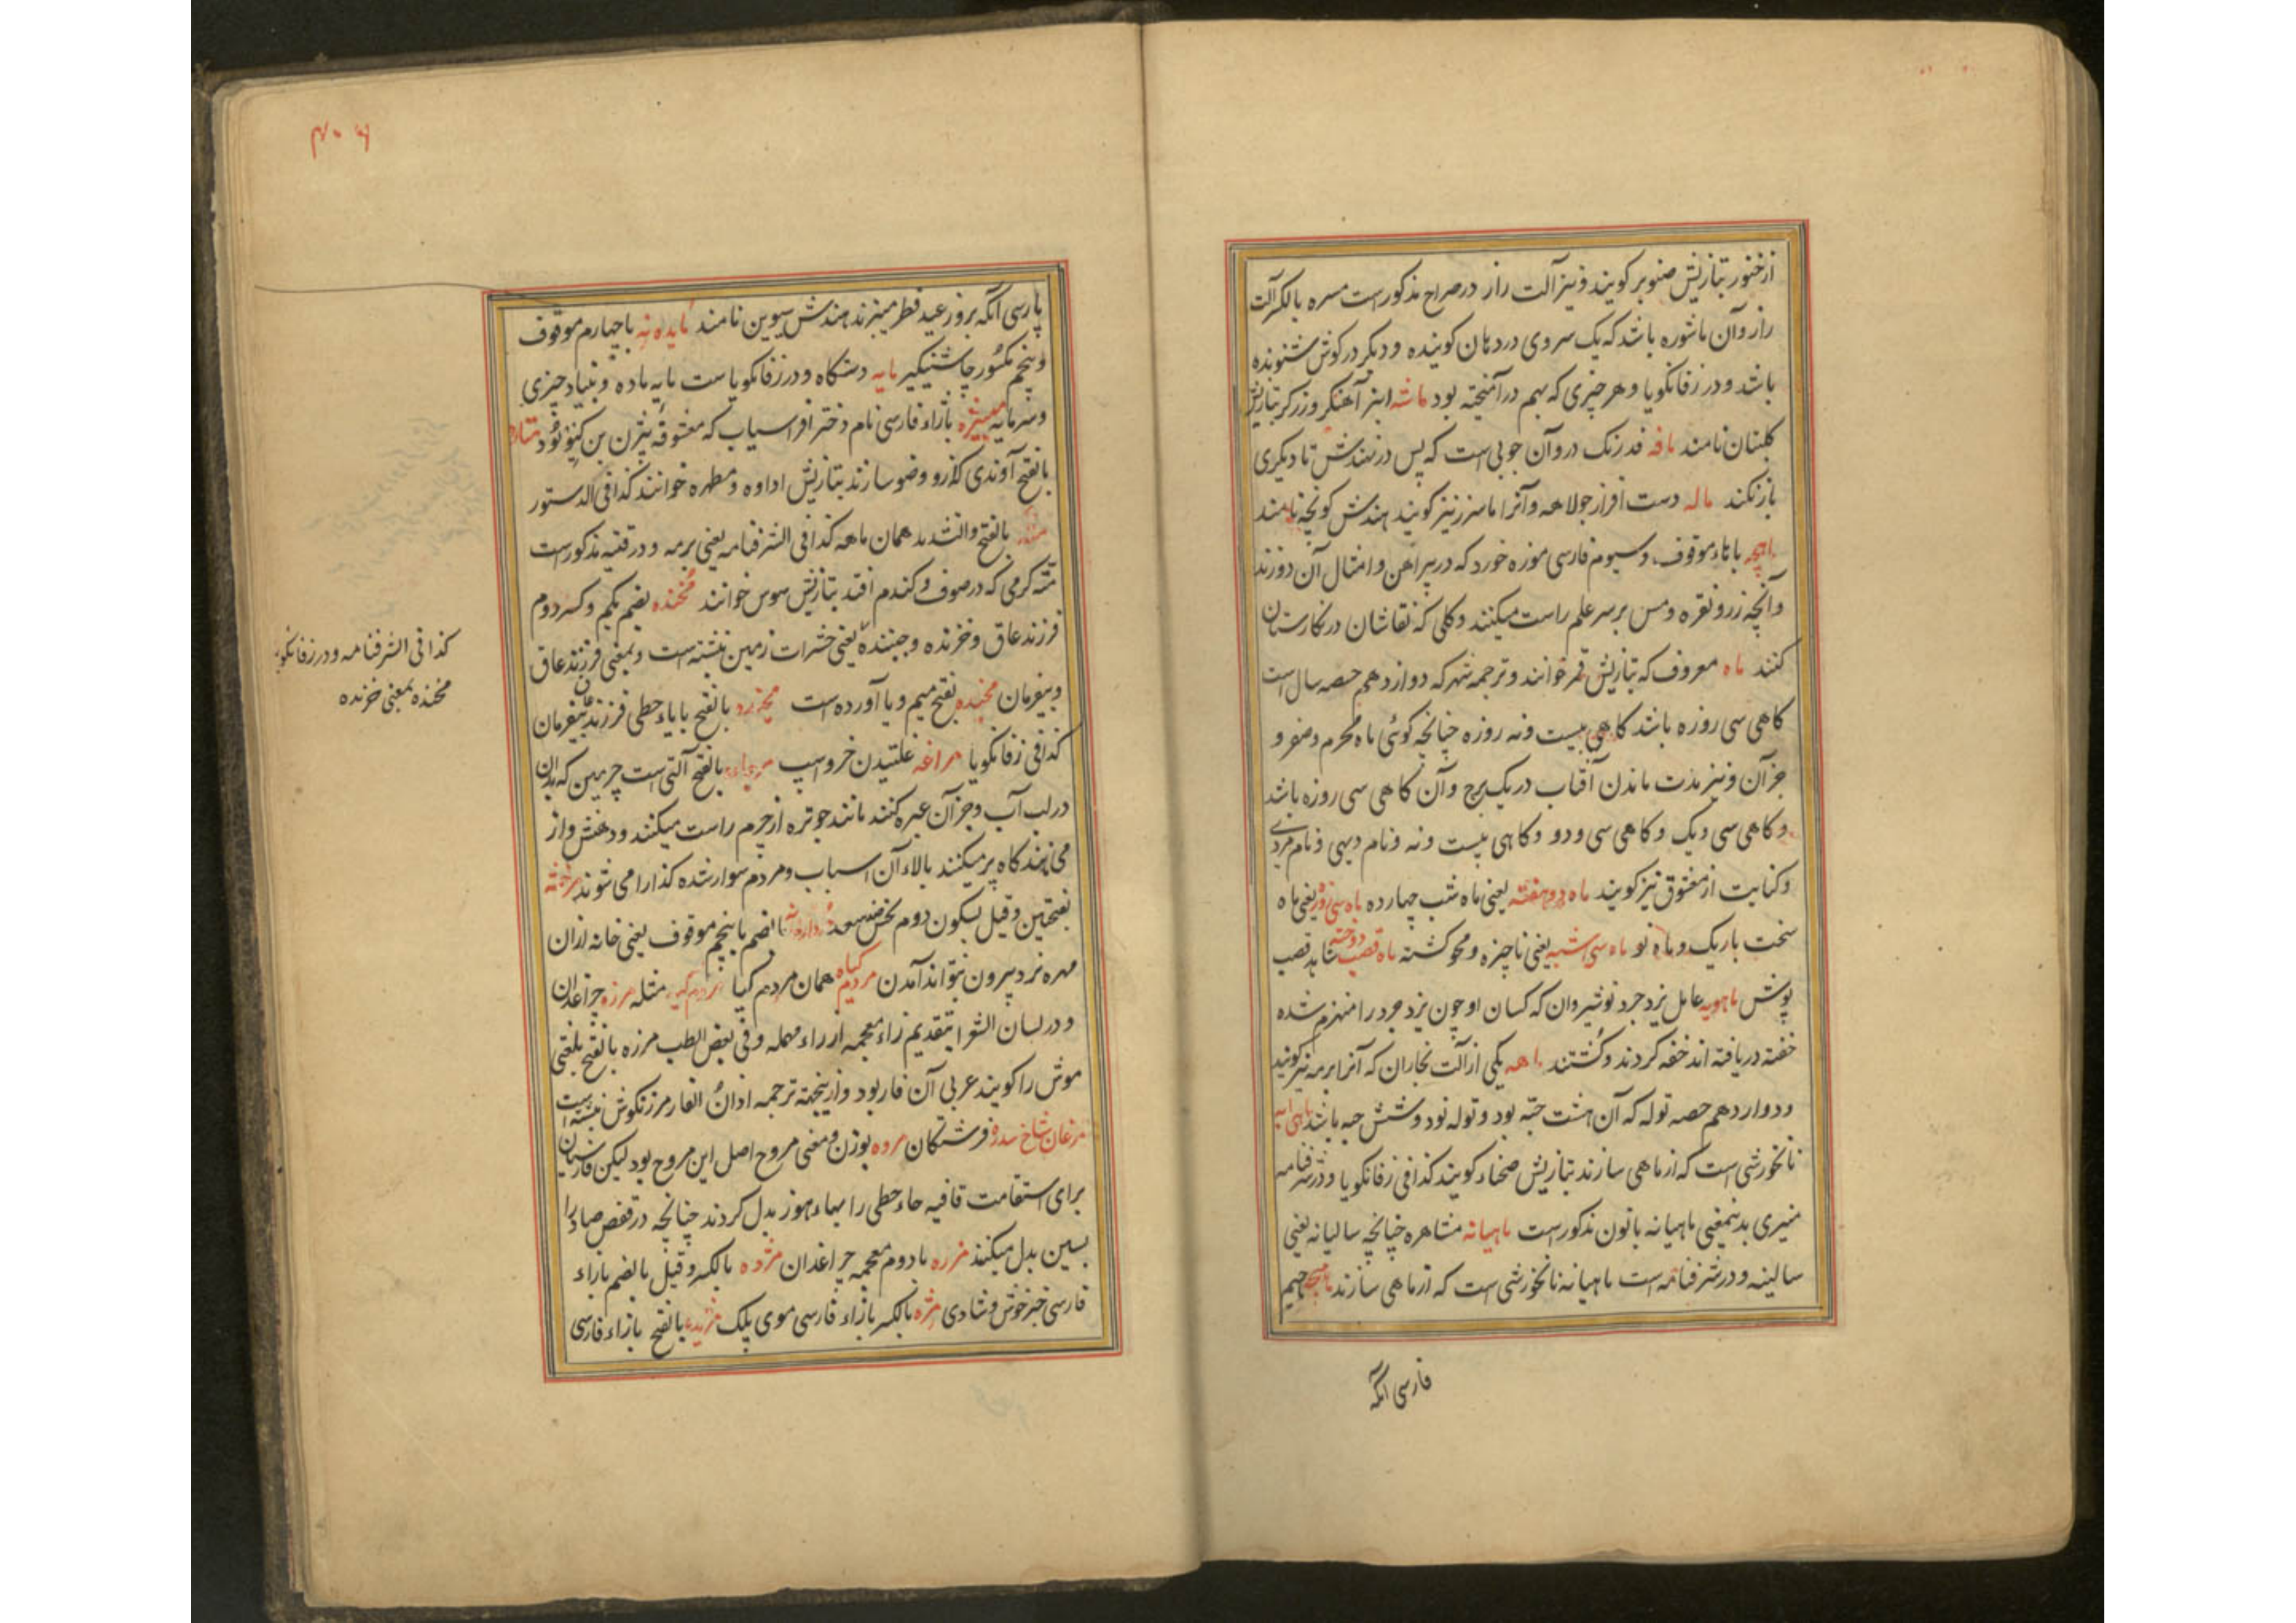 ازخنور بتازیش صنوبر کویند و نیز آلت راز در صراح مذکورست مسره بالکسر آلت
راز و آن ماشوره باشد که یک سر وی در دهان کوینده و دیکر در کوش شنونده
باشد و در زفانکویا و هر چیزی که بهم درآمیخته بود ماشه انبر آهنکر و زرکر بتازیش
کلبتان نامند مافه فدرنک در و آن چوبی است که پس در نهندش تا دیکری
باز نکند ماله دست افزار جولاهه و آنرا نیز کویند هندش کونچه نامند
با تاء موقوف و سیوم فارسی موزه خورد که در پیراهن و امثال آن دوزند
و آنچه زر و نقره و مس بر سر علم راست میکنند و کلی که نقاشان در نکارستان
کنند ماه معروف که بتازیش قمر خوانند و ترجمه شهر که دوازدهم حصه سال است
کاهی سی روزه باشد کاهی بیست و نه روزه چنانچه کوئی ماه محرم و صفر و
جز آن و نیز مدت ماندن آفتاب در یک برج و آن کاهی سی روزه باشد
و کاهی سی و یک و کاهی سی و دو و کاهی بیست و نه و نام دیهی و نام مردی
و کنایت از معشوق نیز کویند ماه دو هفته یعنی ماه شب چهارده ماه سی روزه یعنی ماه
سخت باریک و ماه نو ماه سی شبه یعنی ناچیزه و محو کشته ماه قصب دوخته شاهد قصب
پوش ماهویه عامل یزدجرد نوشیروان که کسان او چون یزدجرد را منهزم شده
خفته دریافته اند خفه کردند و کشتند ماهه یکی از آلت نجاران که آنرا برمه نیز کویند
و دوازدهم حصه توله که آن هشت حبه بود و توله نود و شش حبه باشد ماهی آبه
نانخورشی است که از ماهی سازند بتازیش صحناء کویند کذا فی زفانکویا و در شرفنامه
منیری بدینمعنی ماهیانه بانون مذکورست ماهیانه مشاهره چنانچه سالیانه یعنی
سالینه و در شرفنامه است ماهیانه نانخورشی است که از ماهی سازند جیم
فارسی آنکه
پارسی آنکه بروز عید فطر میپزند هندش سیوین نامند مایده نه با چهارم موقوف
و پنجم مکسور چاشنیکیر مایه دستکاه و در زفانکویاست مایه ماده و بنیاد چیزی
و سرمایه منیژه بازاء فارسی نام دختر افراسیاب که معشوقه بیژن بن کیو بود متاره
بالفتح آوندی کازو وضو سازند بتازیش اداوه و مطهره خوانند کذا فی الدستور
بالفتح والتشدید همان ماهه کذا فی الشرفنامه یعنی برمه و در قنیه مذکورست
مته کرمی که در صوف و کندم افتد بتازیش سوس خوانند مخنده بضم یکم و کسر دوم
فرزند عاق و خزنده و جنبنده یعنی حشرات زمین نبشته است و بمعنی فرزند عاق
و بیفرمان مخیده بفتح میم و یا آورده است بالفتح بایاء حطی فرزند عاق بیفرمان
کذا فی زفانکویا مراغه غلتیدن خر و اسپ بالفتح آلتی است چرمین که بدان
در لب آب و جز آن عبره کنند مانند جوتره از چرم راست میکنند و دهنش واز
می نهند کاه پر میکنند بالاء آن اسباب و مردم سوار شده کذارا می شوند مرخشه
بفتحتین و قیل بسکون دوم نحس ضد سعد بالضم با پنجم موقوف یعنی خانه ازان
مهره نرد بیرون نتواند آمدن مردم کیاه همان مردم کیا مثله مرزه چراغدان
و در لسان الشعرا بتقدیم زاء معجمه از راء مهمله و فی بعض الطب مرزه بالفتح بلغتی
موش را کویند عربی آن فار بود و ازینجهة ترجمه اذان الفار مرزنکوش نبشته است
مرغان شاخ سدره فرشتکان مروه بوزن و معنی مروح اصل این مروح بود لیکن فارسیان
برای استقامت قافیه حاء حطی را بهاء هوز بدل کردند چنانچه در قفص صاد را
بسین بدل میکنند مزره با دوم معجمه چراغدان مژده بالکسر و قیل بالضم بازاء
فارسی خبر خوش و شادی مژه بالکسر بازاء فارسی موی پلک بالفتح بازاء فارسی
کذا فی الشرفنامه و در زفانکویا
مخنده بمعنی خزنده